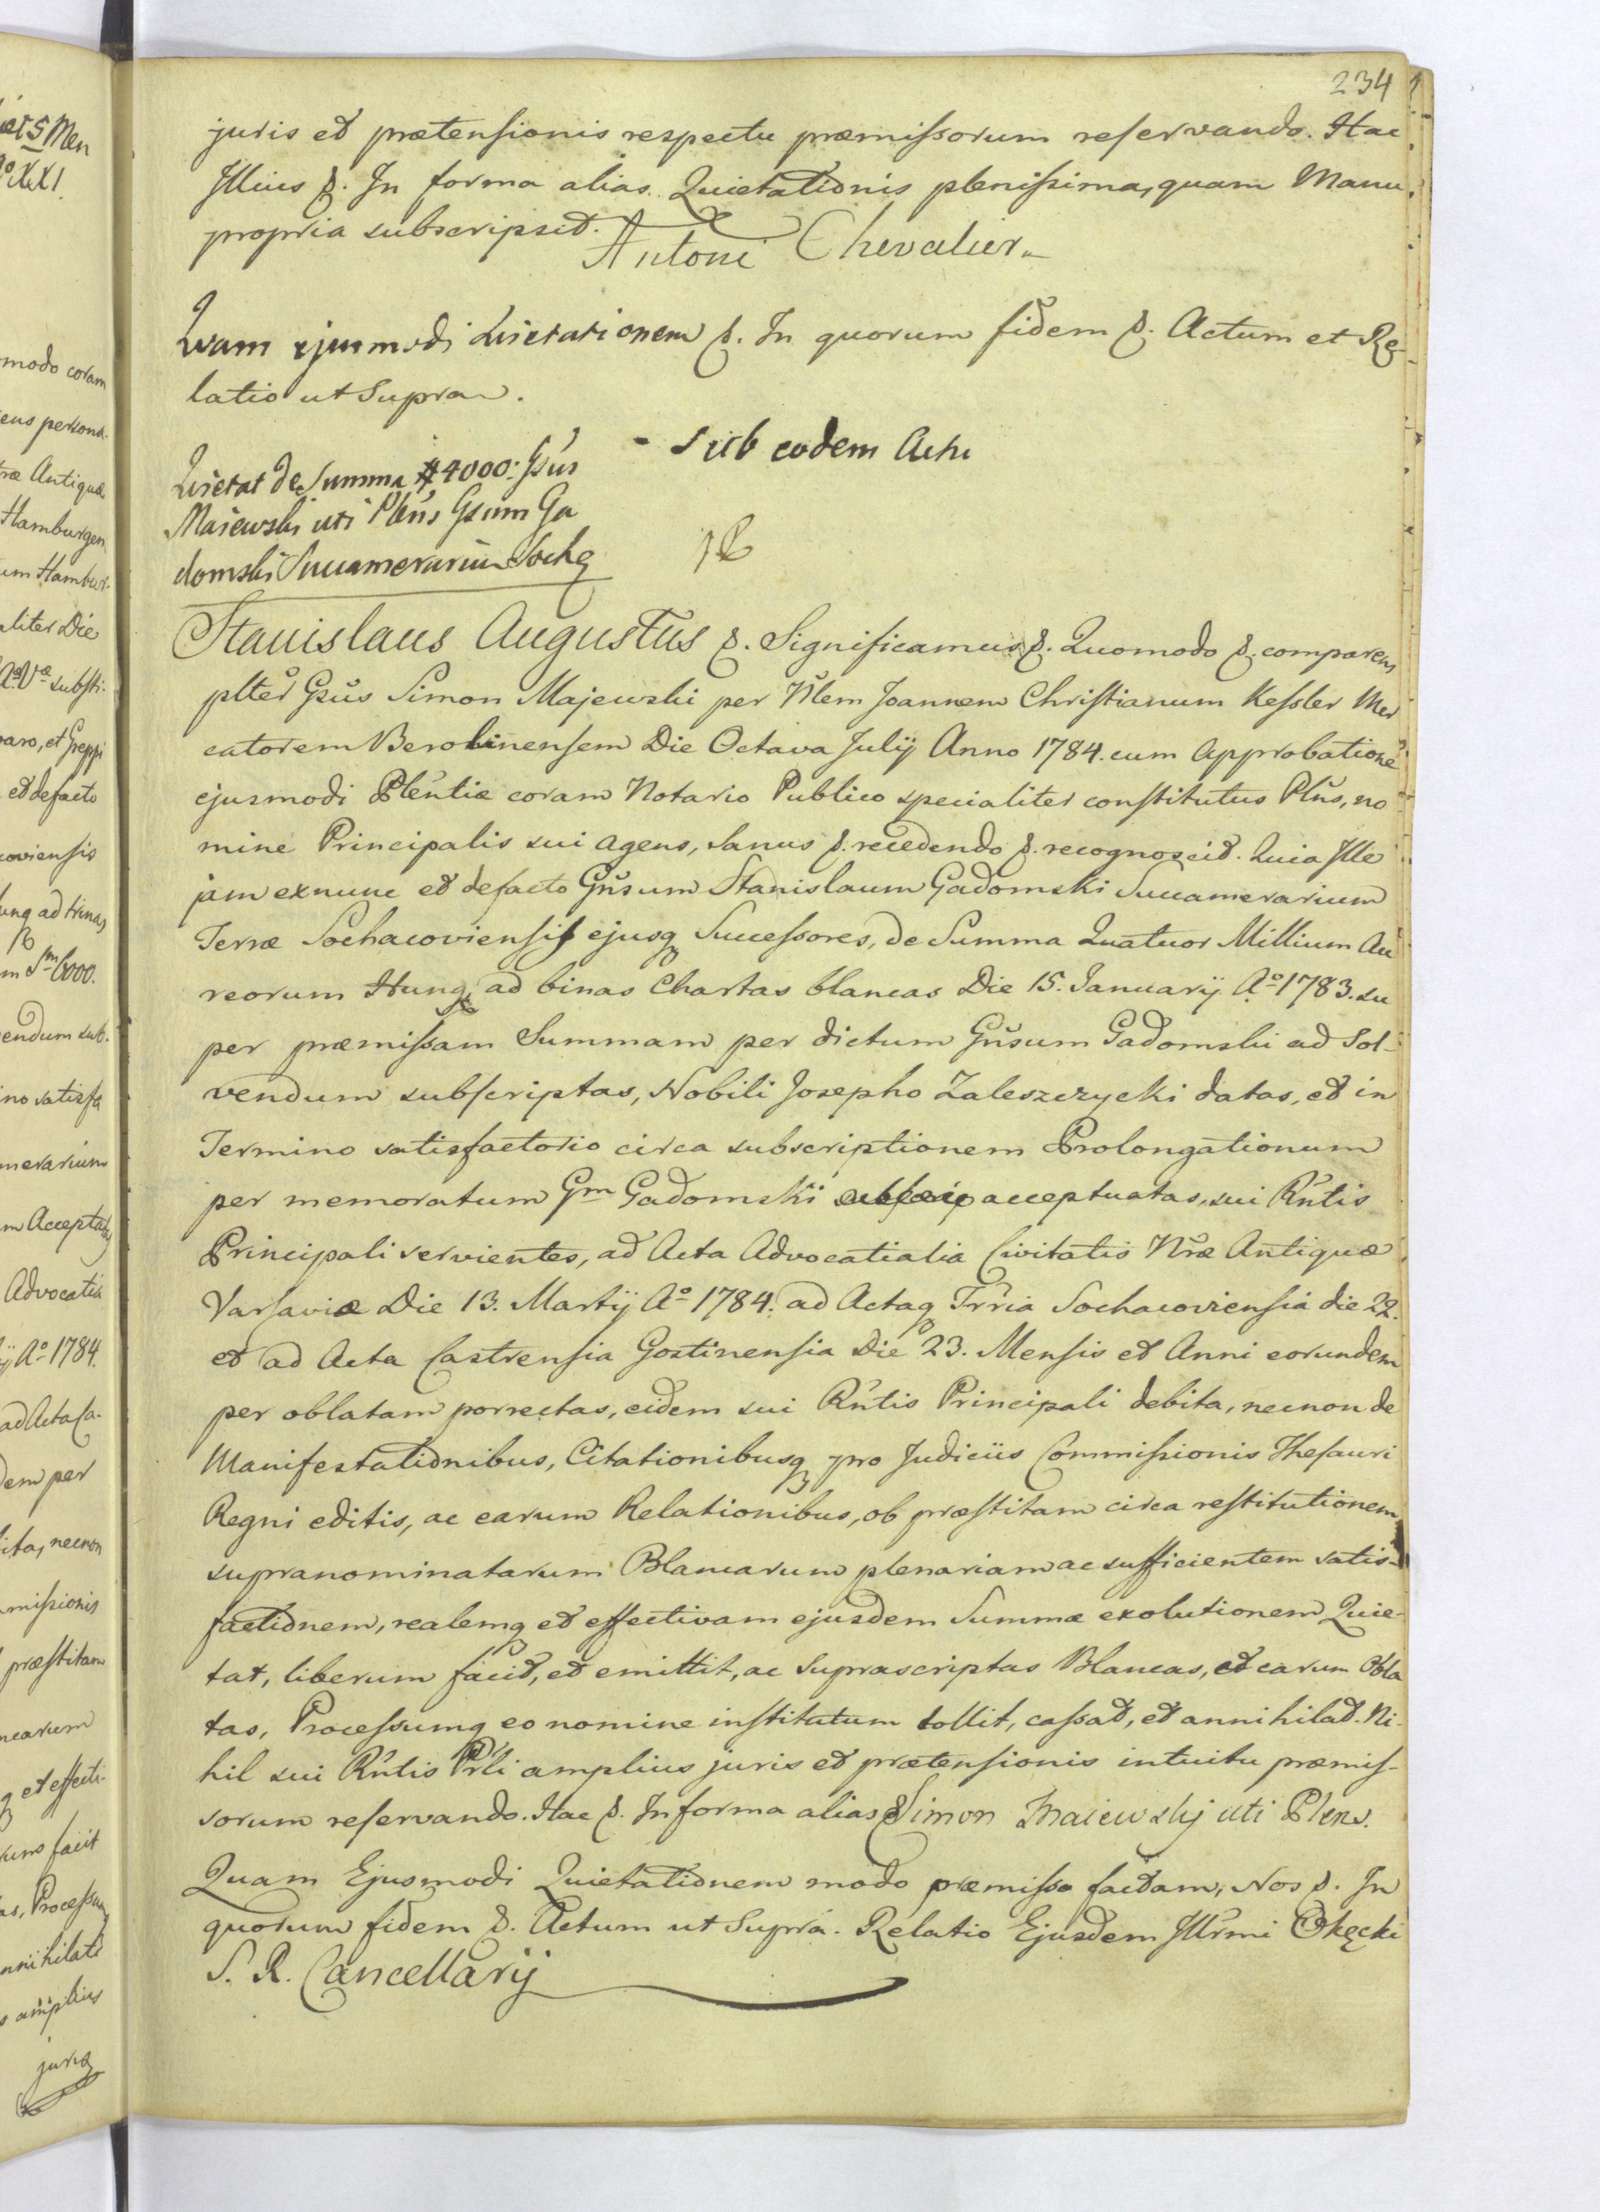 234
juris et prætensionis respectu præmissorum reservando. Hac
Illius &. In forma alias Quietationis plenissima, quam Manu
propria subscripsit. Antoni Chevalier
Quam ejusmodi Quietationem &. In quorum fidem &. Actum et Re-
latio ut Supra.
- Sub eodem Actu
Quietat de Summa # 4000: Gsus
Majewski uti Plens Gsum Ga
domski Succamerarium Sochq
Stanislaus Augustus &. Significamus &. Quomodo &. comparens
plter Gsus Simon Majewski per Nlem Joannem Christianum Kessler Mer
catorem Berolinensem Die Octava Julij Anno 1784. cum Approbatione
ejusmodi Plentiæ coram Notario Publico specialiter constitutus Plns, no
mine Principalis sui agens, sanus &. recedendo &. recognoscit. Quia Ille
jam exnunc et defacto Gnsum Stanislaum Gadomski Succamerarium
Terræ Sochacoviensis ejusq Successores, de Summa Quatuor Millium Au
reorum Hung ad binas Chartas blancas Die 15. Januarij Ao 1783. su
per præmissam Summam per dictum Gnsum Gadomski ad Sol-
vendum subscriptas, Nobili Josepho Zaleszczycki datas, et in
Termino satisfactorio circa subscriptionem Prolongationum
per memoratum Gm Gadomski acceptuatas, sui Rntis
Principali servientes, ad Acta Advocatialia Civitatis Nræ Antiquæ
Varsaviæ Die 13. Martij Ao 1784. ad Actaq Trria Sochacoviensia die 22.
et ad Acta Castrensia Gostinensia Die 23. Mensis et Anni eorundem
per oblatam porrectas, eidem sui Rntis Principali debita, necnon de
Manifestationibus, Citationibusq pro Judiciis Commissionis Thesauri
Regni editis, ac earum Relationibus, ob præstitam circa restitutionem
supranominatarum Blancarum plenariam ac sufficientem satis-
factionem, realemq et effectivam ejusdem Summæ exolutionem Quie-
tat, liberum facit, et emittit, ac Suprascriptas Blancas, et earum Obla
tas, Processumq eo nomine institutum tollit, cassat, et annihilat. Ni-
hil sui Rntis Prli amplius juris et prætensionis intuitu præmis-
sorum reservando. Hac &. In forma alias Simon Maiewskj uti Plens.
Quam Ejusmodi Quietationem modo præmisso factam, Nos &. In
quorum fidem &. Actum ut Supra. Relatio Ejusdem Illrmi Okęcki
S. R. Cancellarij